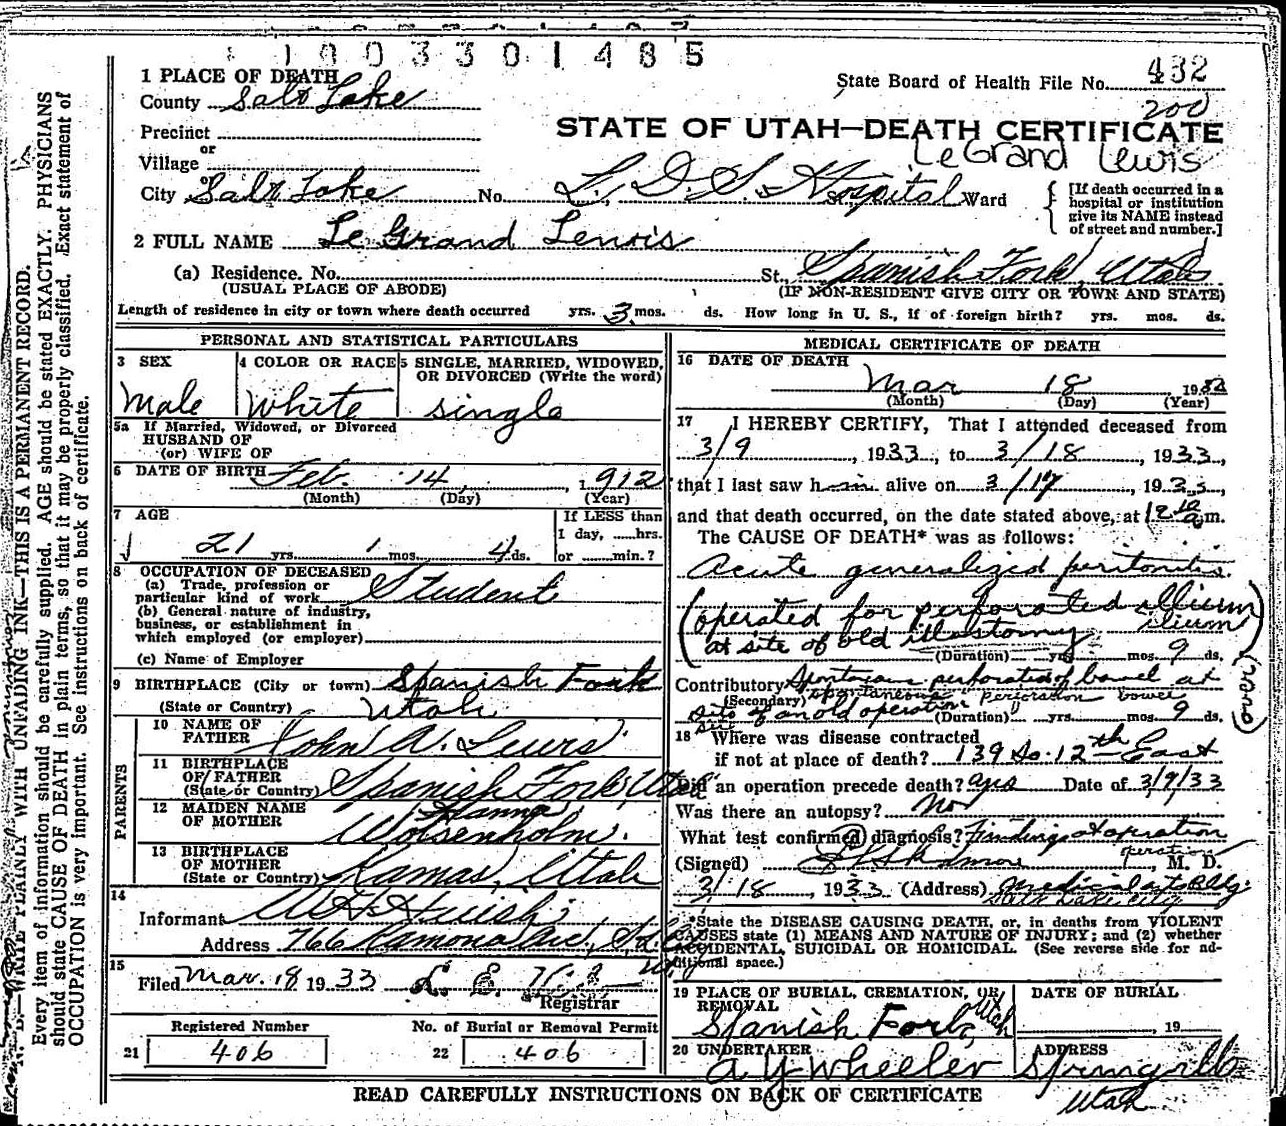 1 8 0 3 3 0 1 4 8 5
1 PLACE OF DEATH
State Board of Health File No. 432
County Salt Lake
200
Precinct
STATE OF UTAH—DEATH CERTIFICATE
or
LeGrand Lewis
Village
or
City Salt Lake No. L. D. S. Hospital St., Ward
[If death occurred in a
hospital or institution
give its NAME instead
of street and number.]
2 FULL NAME Le Grand Lewis
(a) Residence. No. St., Spanish Fork, Utah
(USUAL PLACE OF ABODE) (IF NON-RESIDENT GIVE CITY OR TOWN AND STATE)
Length of residence in city or town where death occurred yrs. 3 mos. ds. How long in U. S., if of foreign birth? yrs. mos. ds.
PERSONAL AND STATISTICAL PARTICULARS
3 SEX 4 COLOR OR RACE 5 SINGLE, MARRIED, WIDOWED,
OR DIVORCED (Write the word)
Male White single
5a If Married, Widowed, or Divorced
HUSBAND OF
(or) WIFE OF
6 DATE OF BIRTH Feb. 14, 1912
(Month) (Day) (Year)
7 AGE If LESS than
1 day, ......hrs.
21 yrs. 1 mos. 4 ds. or ......min.?
8 OCCUPATION OF DECEASED
(a) Trade, profession or
particular kind of work Student
(b) General nature of industry,
business, or establishment in
which employed (or employer)
(c) Name of Employer
9 BIRTHPLACE (City or town) Spanish Fork
(State or Country) Utah
PARENTS
10 NAME OF
FATHER John A. Lewis
11 BIRTHPLACE
OF FATHER
(State or Country) Spanish Fork, Utah
12 MAIDEN NAME Hanna
OF MOTHER Wolsenholm.
13 BIRTHPLACE
OF MOTHER
(State or Country) Kamas, Utah
14
Informant
Address 766 Ramona Ave.,
15
Filed Mar. 18 1933 L. E.
Registrar
Registered Number No. of Burial or Removal Permit
21 406 22 406
MEDICAL CERTIFICATE OF DEATH
16 DATE OF DEATH
Mar 18 1933
(Month) (Day) (Year)
17 I HEREBY CERTIFY, That I attended deceased from
3/9, 1933, to 3/18, 1933,
that I last saw him alive on 3/17, 1933,
and that death occurred, on the date stated above, at 12 10 a.m.
The CAUSE OF DEATH* was as follows:
Acute generalized peritonitis.
(operated for perforated illium
ilium
at site of old illiostomy
(Duration) yrs. mos. 9 ds.
Contributory Spontanious perforation of bowel at
(Secondary) spontaneous perforation bowel
site of an old operation (Duration) yrs. mos. 9 ds.
(over)
18 Where was disease contracted
if not at place of death? 139 So. 12th East
Did an operation precede death? yes Date of 3/9/33
Was there an autopsy? No
What test confirmed diagnosis? Findings at operation
operation
(Signed) M. D.
3/18, 1933 (Address) Medical Arts Bldg.
Salt Lake City
*State the DISEASE CAUSING DEATH, or, in deaths from VIOLENT
CAUSES state (1) MEANS AND NATURE OF INJURY; and (2) whether
ACCIDENTAL, SUICIDAL OR HOMICIDAL. (See reverse side for ad-
ditional space.)
19 PLACE OF BURIAL, CREMATION, OR
REMOVAL
Spanish Fork, Utah
DATE OF BURIAL
, 19
20 UNDERTAKER ADDRESS
A Y Wheeler Springville
Utah
READ CAREFULLY INSTRUCTIONS ON BACK OF CERTIFICATE
N. B.—WRITE PLAINLY WITH UNFADING INK—THIS IS A PERMANENT RECORD.
Every item of information should be carefully supplied. AGE should be stated EXACTLY. PHYSICIANS
should state CAUSE OF DEATH in plain terms, so that it may be properly classified. Exact statement of
OCCUPATION is very important. See instructions on back of certificate.